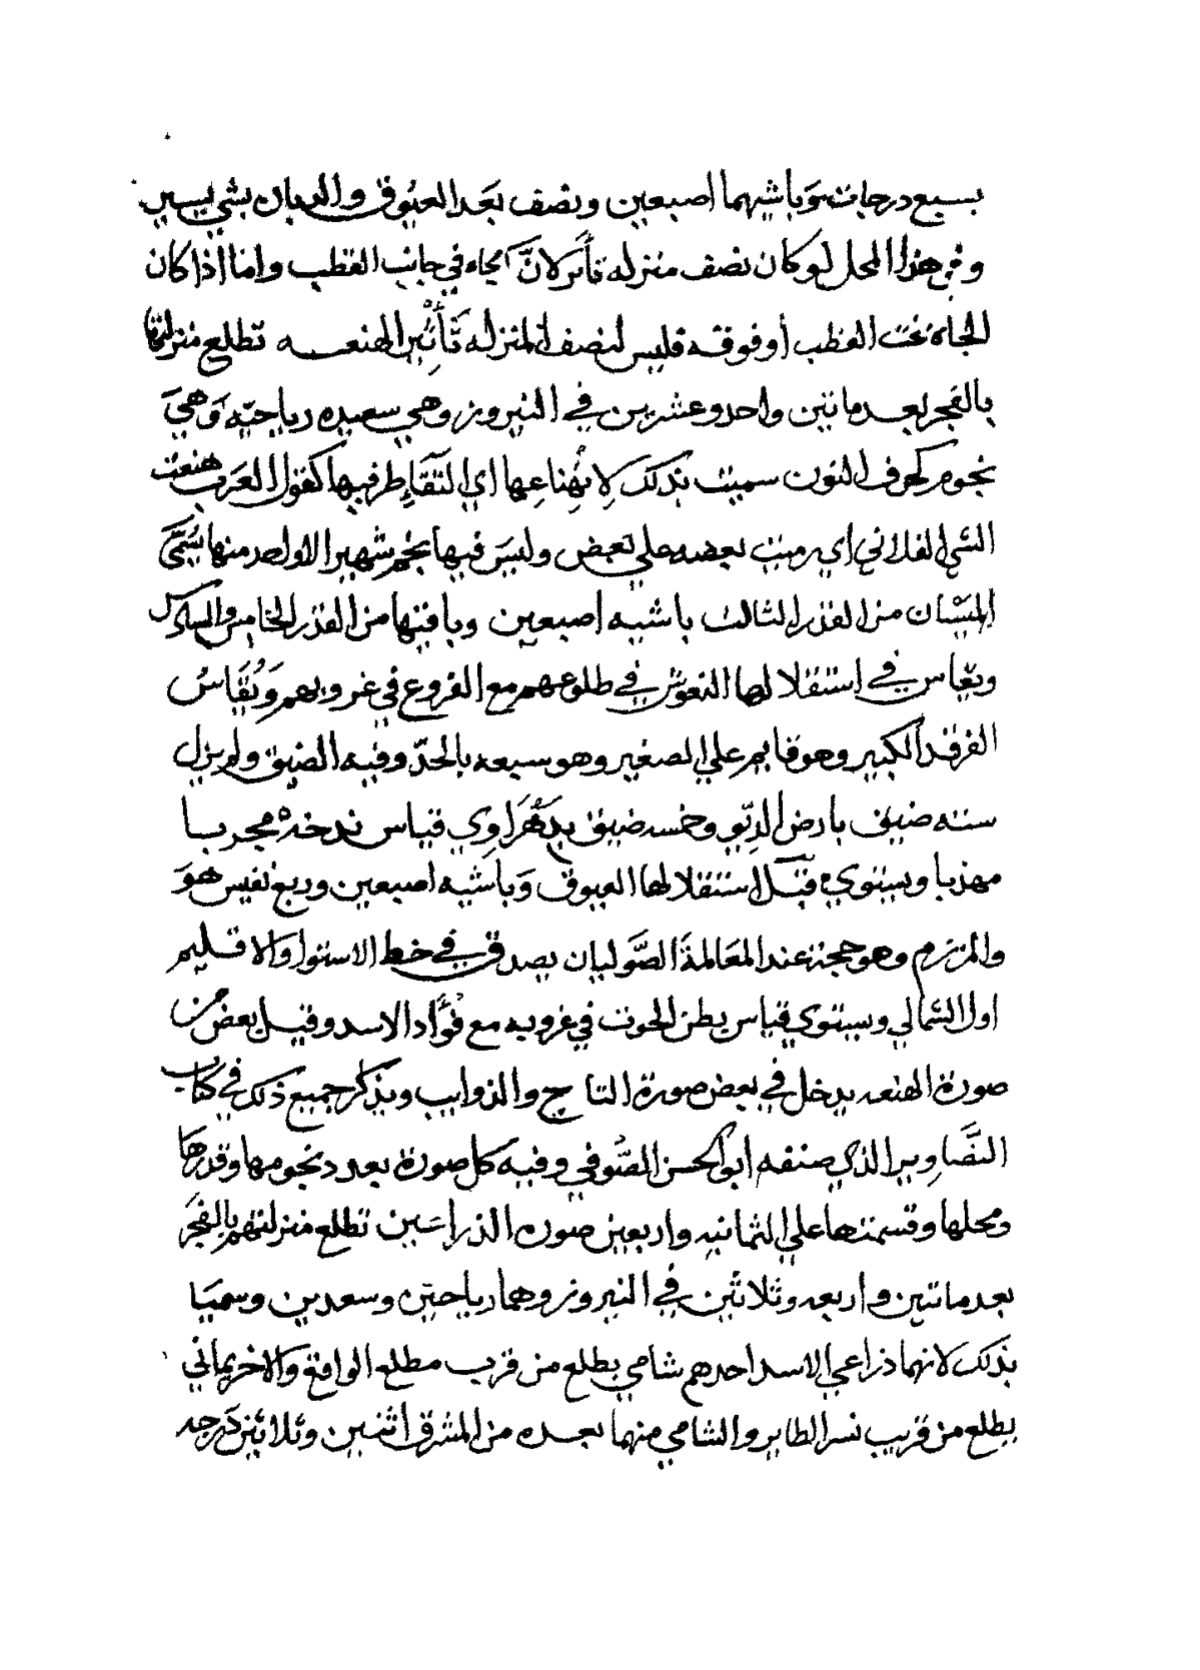 بسبع درجات وباشيهما اصبعين ونصف بعد العيوق والدبران بشي يسير
وفي هذا المحل لو كان نصف منزله تأثر لانّ الجاه في جانب القطب واما اذا كان
الجاه تحت القطب أو فوقه فليس لنصف المنزله تَأثير الهنعــه تطلع منزلتها
بالفجر بعد ماتين واحد وعشرين في النيروز وهي سعيده رياحيّه وَهيَ
نجوم كحرف النون سميت بذلك لانهناعها اي التقاء طرفيها كقول العَرب هنعت
الشي الفلاني اي رميت بعضه علي بعض وليسَ فيها نجم شهير الاواحد منها يسمّي
الميسان من القدر الثالث باشيه اصبعين وباقيتها من القدر الخامس والسادس
ويقاس في استقلالها النعوش في طلوعهم مع الفروع في غروبهم وَيُقَاسُ
الفرقد الكبير وهو قايم علي الصغير وهو سبعه بالحدّ وفيه الضيق ولم يزل
سته ضيق بارض الديّو وخمسه ضيق قياس ندخه مجربا
مهذبا ويستوي قبل استقلالها العيوق وَباشيه اصبعين وربع نفيس هوَ
والمرزم وهو حجة عند المعَالمةَ الصّوليان يصدق في خط الاستوا والاقليم
اول الشمالي ويستوي قياس بطن الحوت في غروبه مع فُؤاد الاسد وقيل بعض من
صورة الهنعه يدخل في بعض صورة التاج والذوايب ويذكر جميع ذلك في كتاب
التصَاوِير الذي صنفه ابو الحسن الصُّوفي وفيه كل صورة بعدد نجومها وقدرها
ومحلها وقسمتها علي الثمانيه واربعين صوره الذراعَين تطلع منزلتهم بالفجَر
بعد ماتين واربعه وثلاثين في النيروز وهما رياحيّن وسعدين وسميَا
بذلك لانهما ذراعي الاسد احدهم شامي يطلع من قرب مطلع الواقع والاخر يماني
يطلع من قريب نسر الطاير والشامي منهما بعده من المشرق اثنين وثلاثين درجه